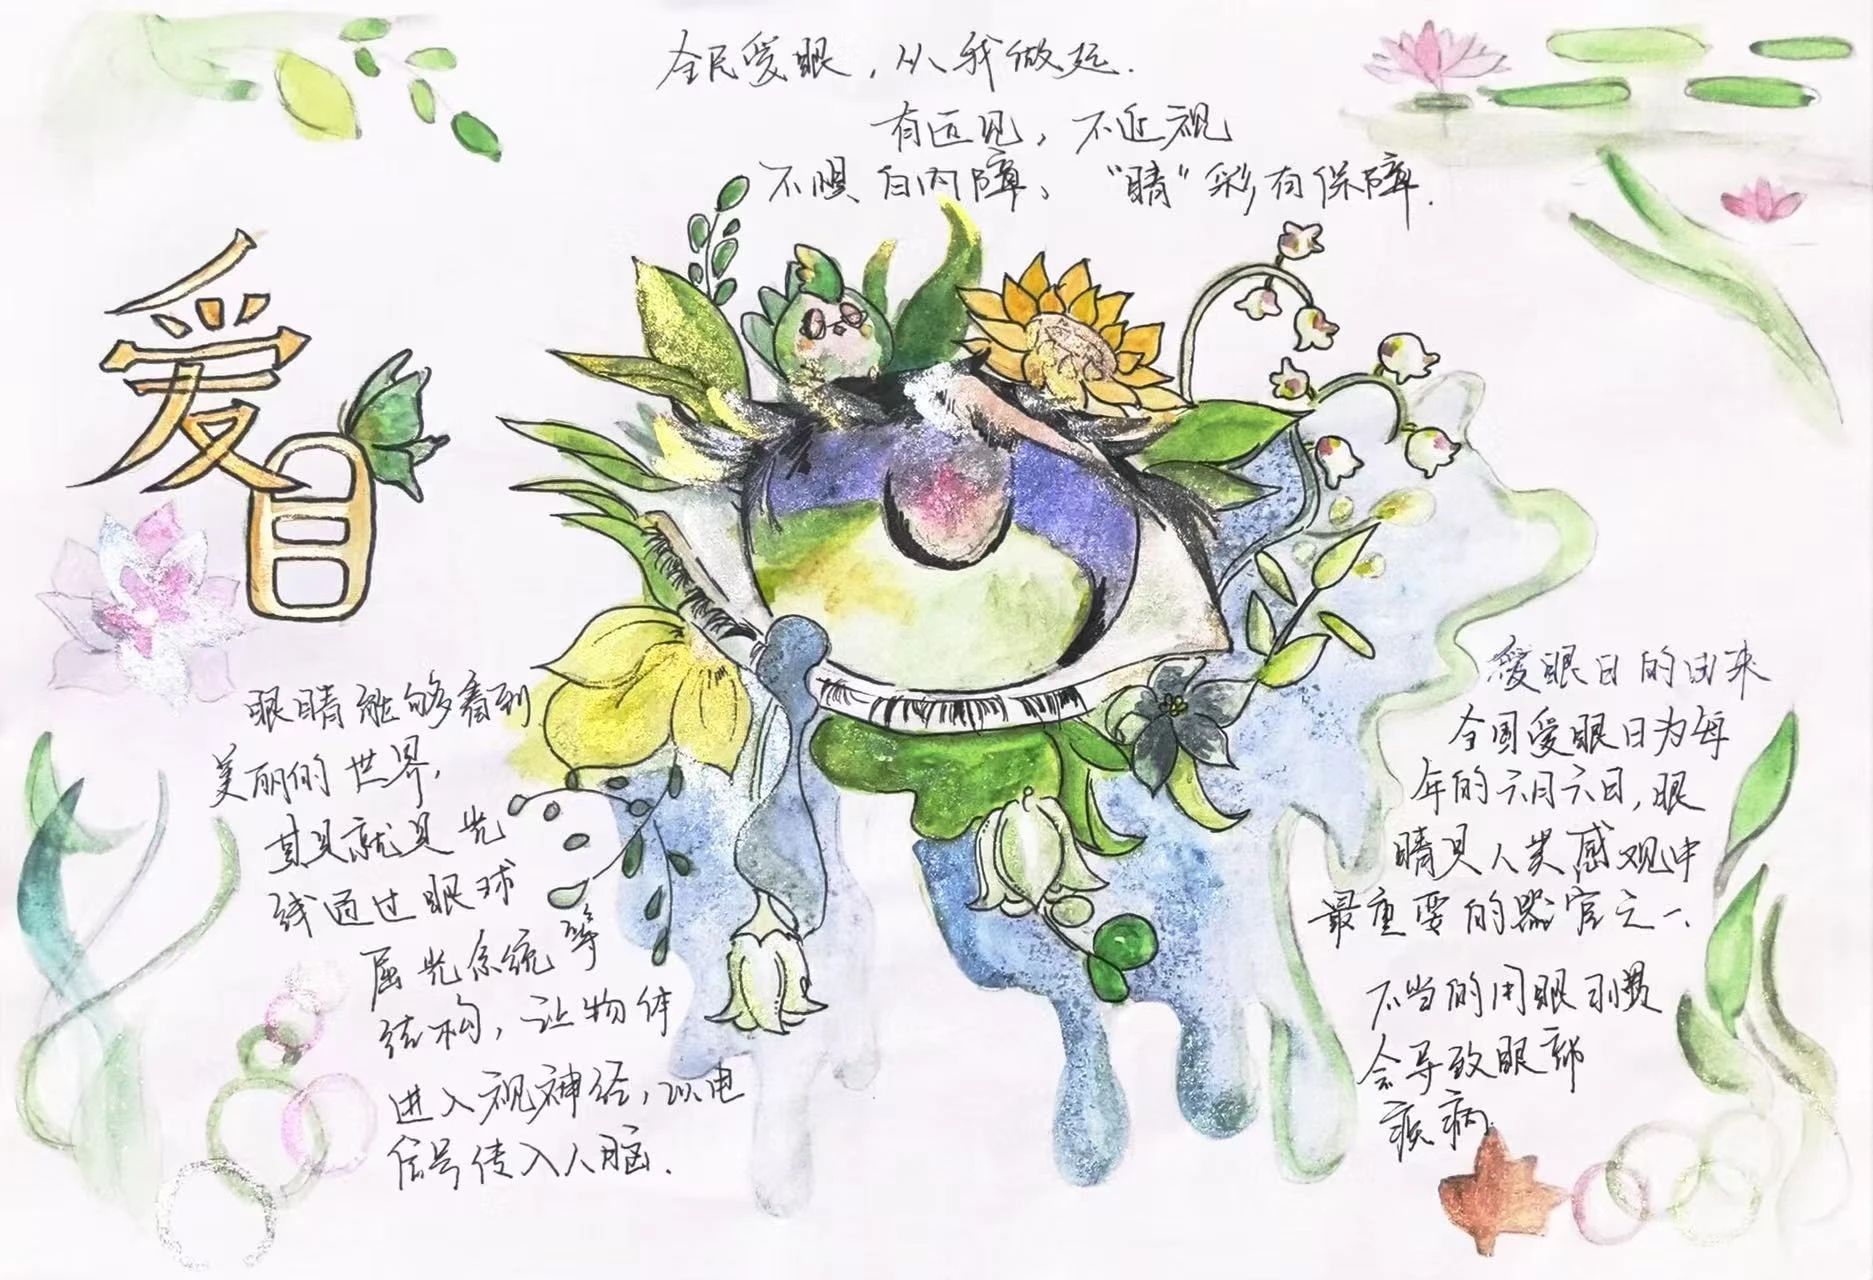 全民爱眼，从我做起.
有远见，不近视
不惧白内障、"睛"彩有保障.
爱
目
眼睛能够看到
美丽的世界，
其具就具光
线通过眼球
屈光系统等
结构，让物体
进入视神经，以电
信号传入人脑.
爱眼日的由来
全国爱眼日为每
年的六月六日，眼
睛具人类感观中
最重要的器官之一.
不当的用眼习惯
会导致眼部
疾病.